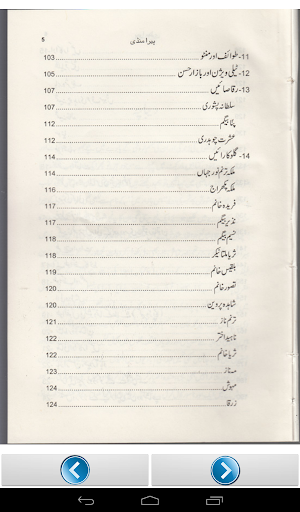 5 ہیرا منڈی
11- طوائف اور منٹو 103
12- ٹیلی ویژن اور بازار حسن 105
13- رقاصائیں
سلطانہ پشوری 107
پنا بیگم 112
عشرت چوہدری 112
14- گلوکارائیں 114
ملکہ ترنم نور جہاں 114
ملکہ پکھراج 116
فریدہ خانم 117
نذیر بیگم 117
نسیم بیگم 118
ثریا ملتانیکر 118
بلقیس خانم 119
تصور خانم 120
شاہدہ پروین 120
ترنم ناز 121
ناہید اختر 122
ثریا خانم 122
مہ ناز 123
مہوش 124
زرقا 124